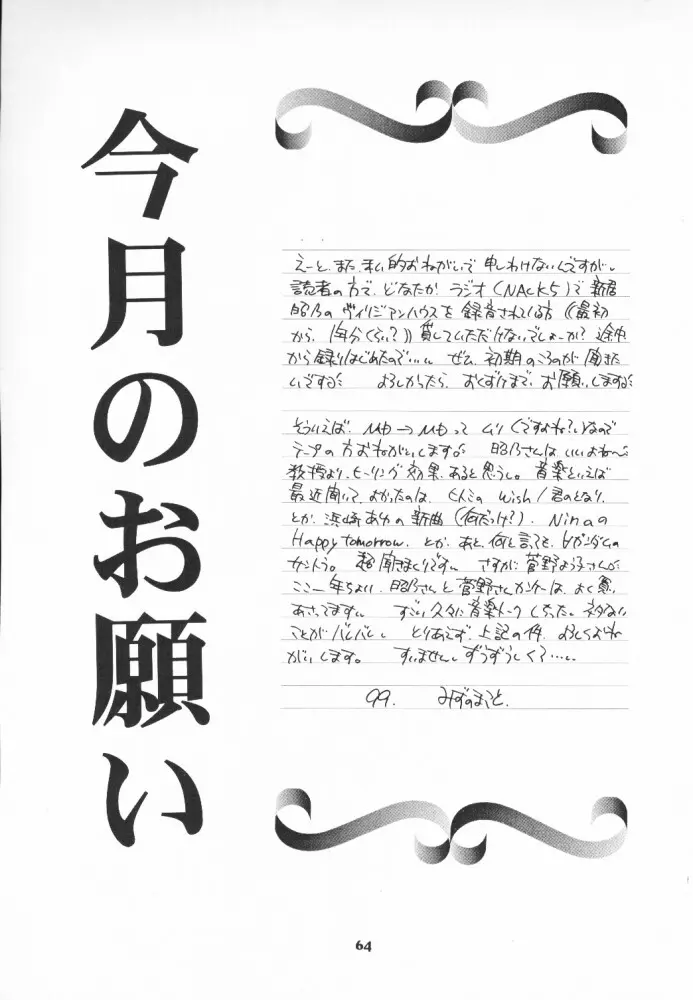 今月のお願い
えーと、また、私的おねがいで申しわけないんですが。
読者の方で、どなたか ラジオ(NACK5)で 新居
昭乃の ヴィリジアンハウスを 録音されてる方《最初
から、1年分くらい?》貸していただけないでしょーか? 途中
から録りはじめたので…。 ぜひ、初期のころのが 聞きた
いですう よろしかったら、おくづけまで、お願いしますう
そういえば、MD→MDって ムリ(ですよね?)なので
テープの方おねがいします。 昭乃さんは いいよね〜
教授より、ヒーリング効果、あると思うし。音楽といえば
最近聞いて、よかったのは、 Wish/君のとなり、
とか、浜崎あゆの新曲(何だっけ?)、Ninaの
Happy tomorrow、とか、あと、何と言っても、∀ガンダムの
サントラ。 超聞きまくりです。 さすがに 菅野よう子さん
ここ一年ちょい、昭乃さんと 菅野さん は、よく買い
あさってます。 すごい久々に音楽トークしちった。ネタない
ことがバレバレ。 とりあえず、上記の件、よろしくおね
がいします。 すいません。ずうずうしくて…。
99. みずのまこと.
64